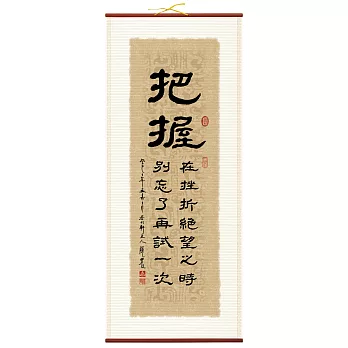 把握
在挫折絕望之時
別忘了再試一次